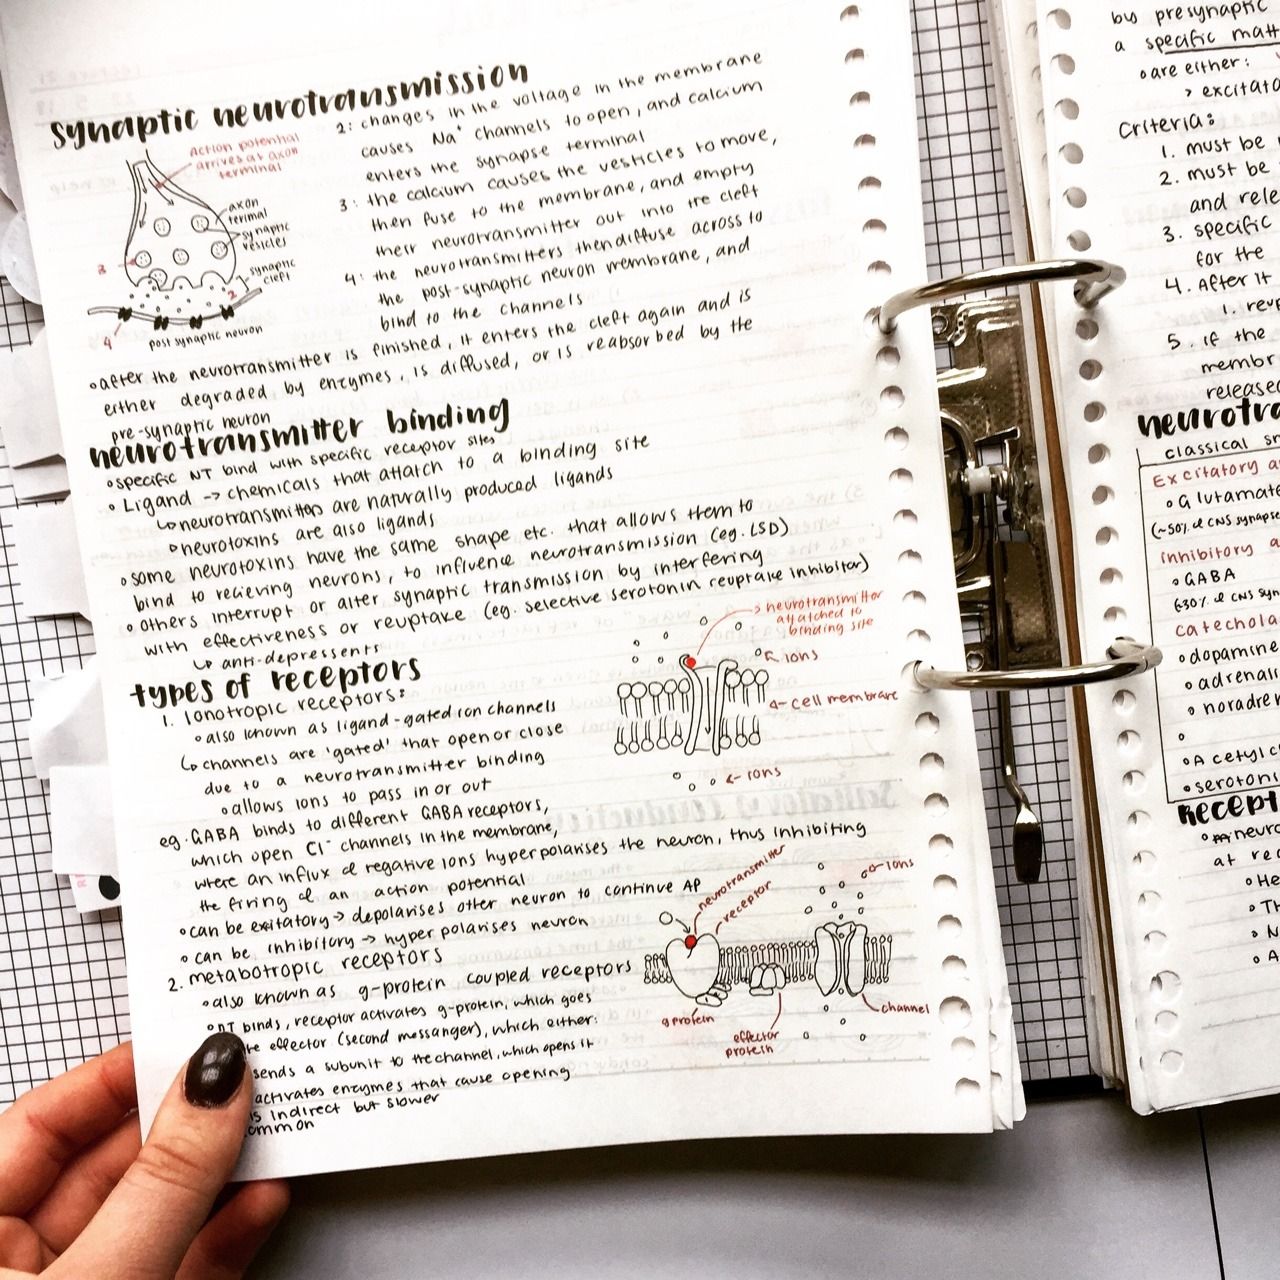 synaptic neurotransmission
Action potential
arrives at axon
terminal
axon
terimal
synaptic
vesicles
synaptic
cleft
3
2
4
post synaptic neuron
2: changes in the voltage in the membrane
causes Na+ channels to open, and calcium
enters the synapse terminal
3: the calcium causes the vesticles to move,
then fuse to the membrane, and empty
their neurotransmitter out into the cleft
4: the neurotransmitters then diffuse across to
the post-synaptic neuron membrane, and
bind to the channels
°after the neurotransmitter is finished, it enters the cleft again and is
either degraded by enzymes, is diffused, or is reabsorbed by the
pre-synaptic neuron
neurotransmitter binding
°specific NT bind with specific receptor sites
°Ligand -> chemicals that attatch to a binding site
↳neurotransmitters are naturally produced ligands
↳neurotoxins are also ligands
°some neurotoxins have the same shape etc. that allows them to
bind to recieving neurons, to influence neurotransmission (eg. LSD)
°others interrupt or alter synaptic transmission by interfering
with effectiveness or reuptake (eg. selective serotonin reuptake inhibitor)
↳ anti-depressents
types of receptors
1. Ionotropic receptors:
°also known as ligand-gated ion channels
↳channels are 'gated' that open or close
due to a neurotransmitter binding
°allows ions to pass in or out
eg. GABA binds to different GABA receptors,
which open Cl- channels in the membrane,
where an influx of negative ions hyperpolarises the neuron, thus inhibiting
the firing of an action potential
°can be exitatory → depolarises other neuron to continue AP
°can be inhibitory → hyper polarises neuron
neurotransmitter
attatched to
binding site
ions
cell membrane
ions
2. metabotropic receptors
°also known as g-protein coupled receptors
°NT binds, receptor activates g-protein, which goes
effector (second messanger), which either:
sends a subunit to the channel, which opens it
activates enzymes that cause opening
is indirect but slower
neurotransmitter
receptor
ions
g protein
effector
protein
channel
by presynaptic
a specific
°are either:
Criteria:
1. must be
2. must be
and
3. specific
for the
4. After it
1.
5. if the
released
classical
Excitatory
°Glutamate
(~50% of CNS
inhibitory
°GABA
(~30% of CNS
°dopamine
°
at